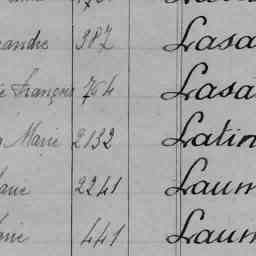 andre 387 Lasa
François 794 Lasa
Marie 2132 Latin
2241 Laum
441 Laum